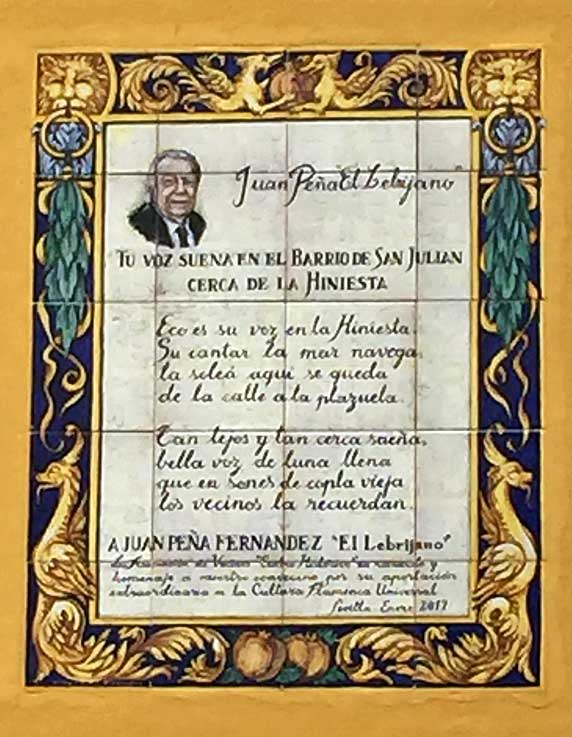 Juan Peña "El Lebrijano"
TU VOZ SUENA EN EL BARRIO DE SAN JULIAN
CERCA DE LA HINIESTA
Eco es su voz en la Hiniesta.
Su cantar la mar navega,
la soleá aquí se queda
de la calle a la plazuela.
Tan lejos y tan cerca sueña,
bella voz de luna llena
que en sones de copla vieja
los vecinos la recuerdan.
A JUAN PEÑA FERNANDEZ "El Lebrijano"
La Asociación de Vecinos "Centro Histórico" en recuerdo y
homenaje a nuestro convecino por su aportación
extraordinaria a la Cultura Flamenca Universal
Sevilla Enero 2017